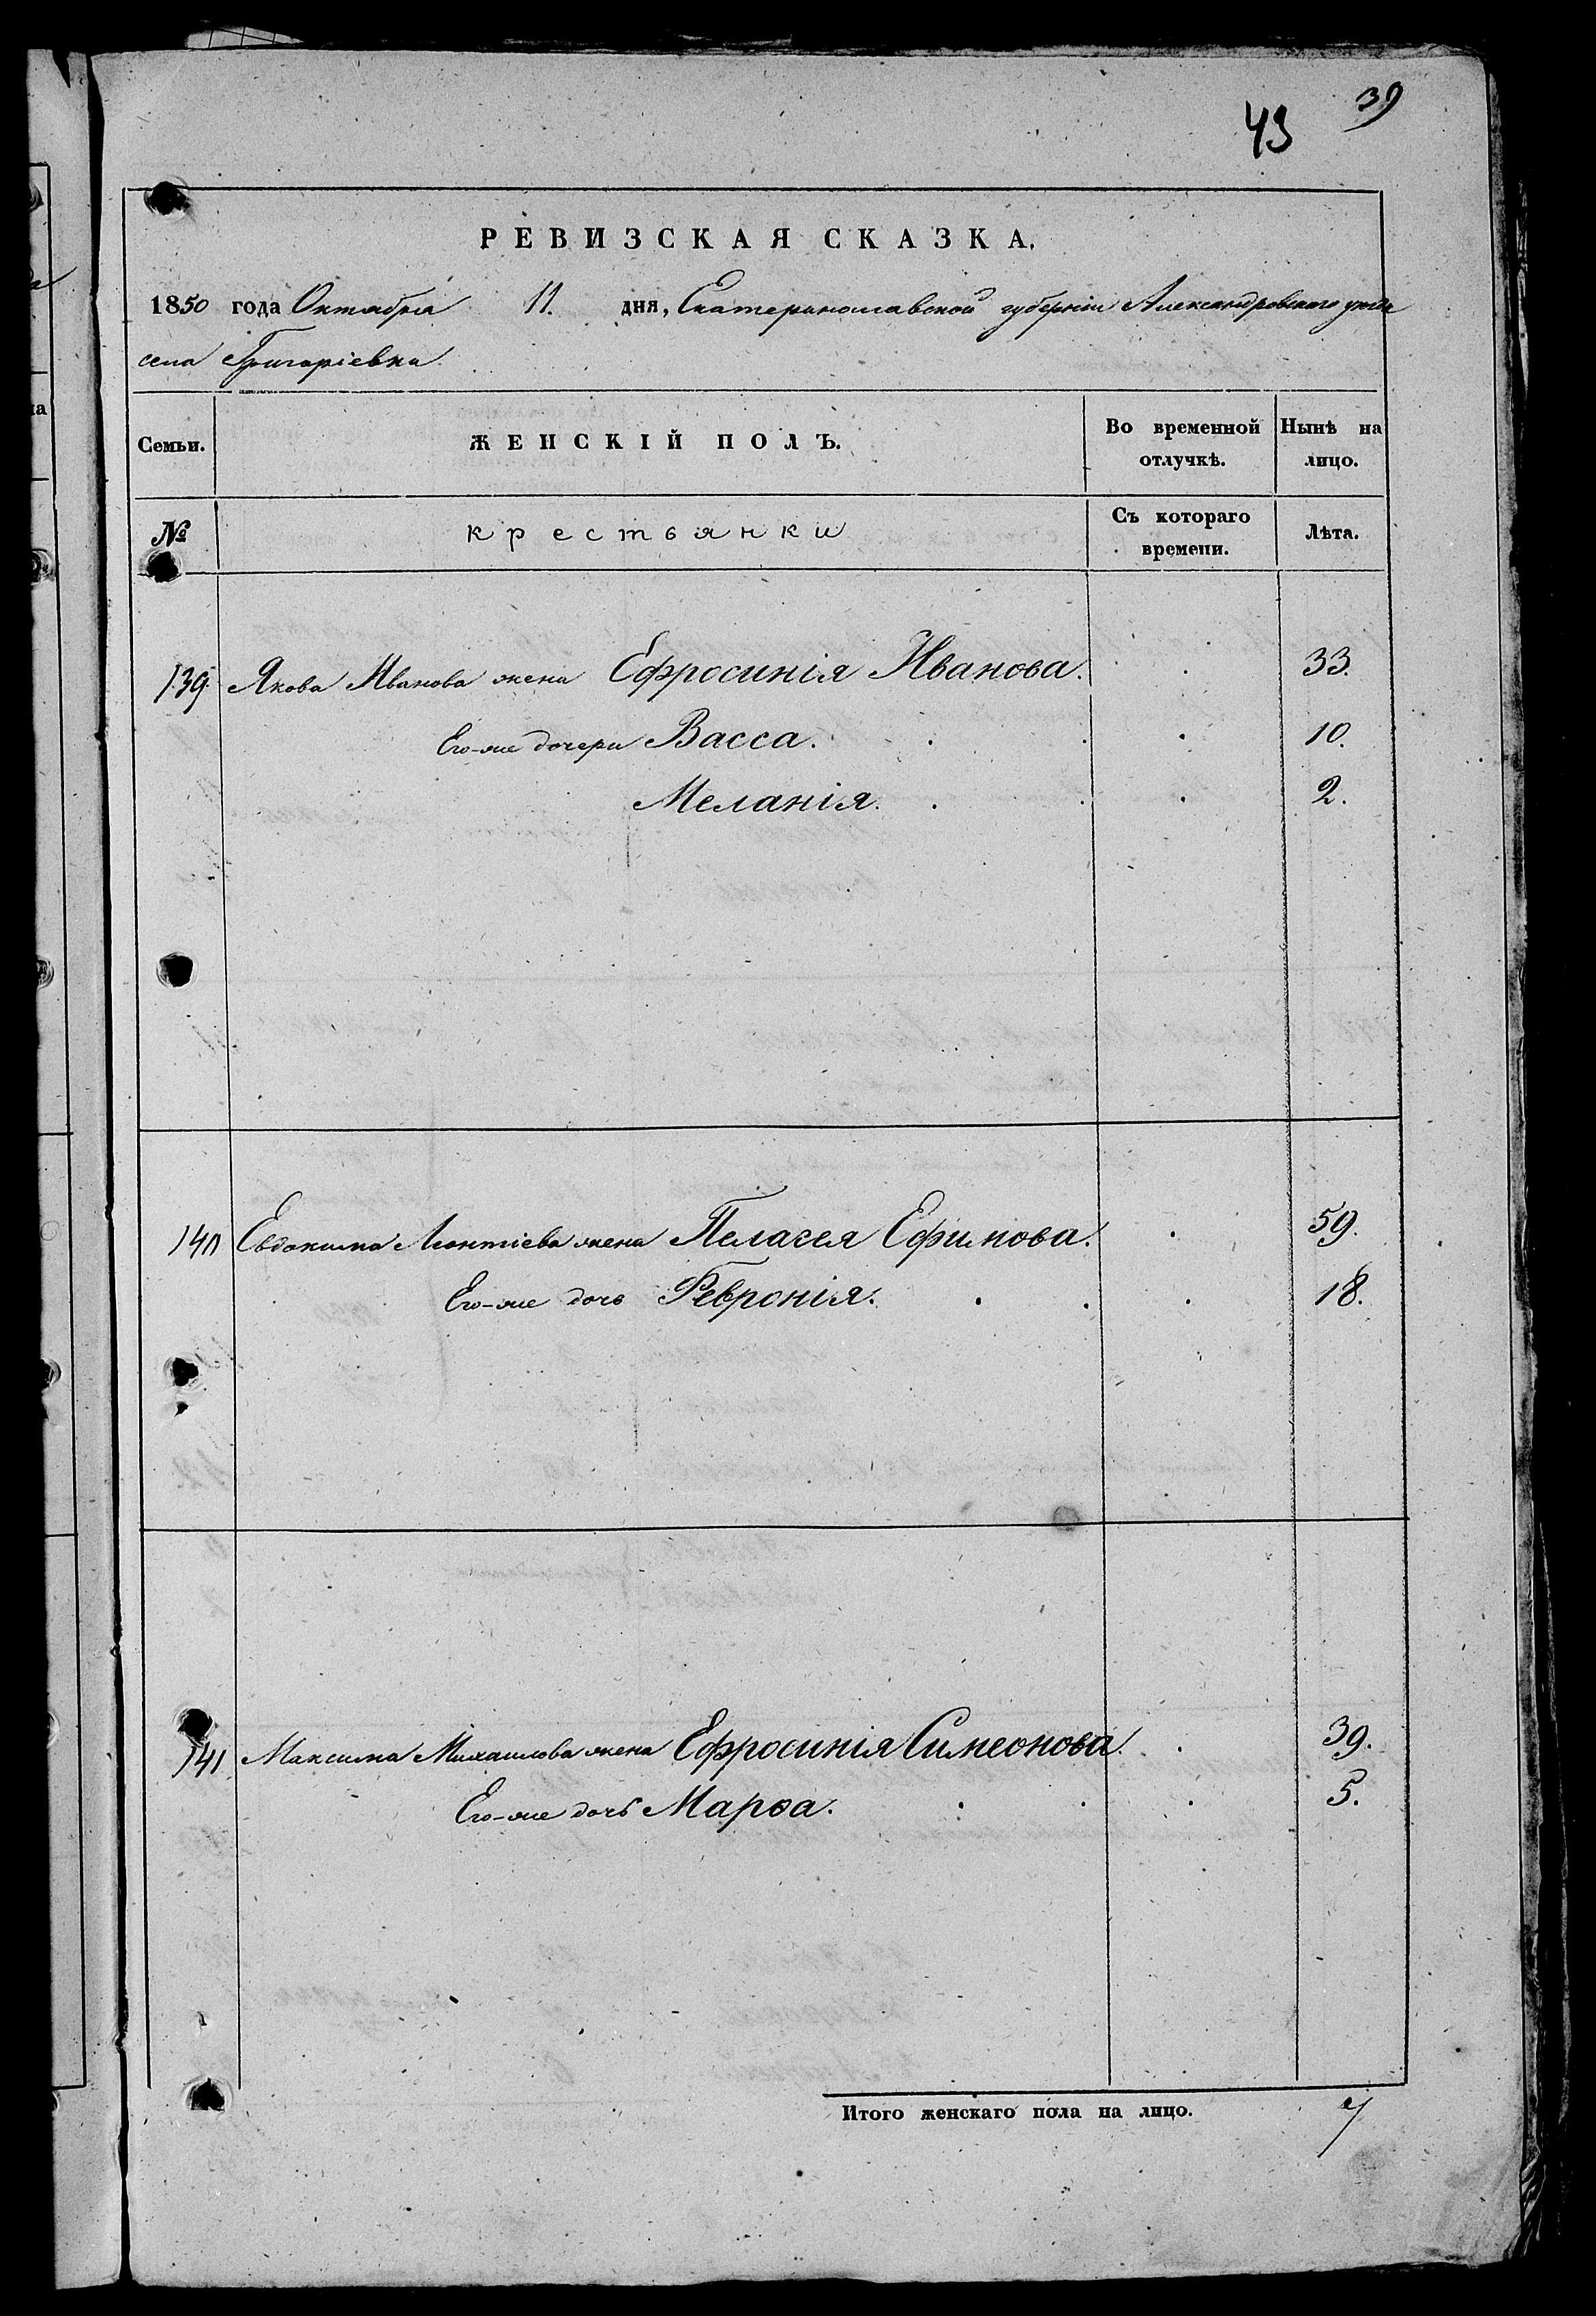 39
43
РЕВИЗСКАЯ СКАЗКА.
1850 года Октября 11. дня, Екатеринославской губерніи Александровского уезда
села Григоріевка
Семьи. ЖЕНСКІЙ ПОЛЪ. Во временной отлучкѣ. Нынѣ на лицо.
№ крестьянки Съ котораго времени. Лѣта.
139. Якова Иванова жена Ефросинія Иванова. 33.
Его-же дочери Васса. 10.
Меланія. 2.
140 Евдокима Леонтіева жена Пелагея Ефимова. 59.
Его-же дочь Февронія. 18.
141 Максима Михаилова жена Ефросинія Симеонова. 39.
Его-же дочь Марѳа. 5.
Итого женскаго пола на лицо. 7